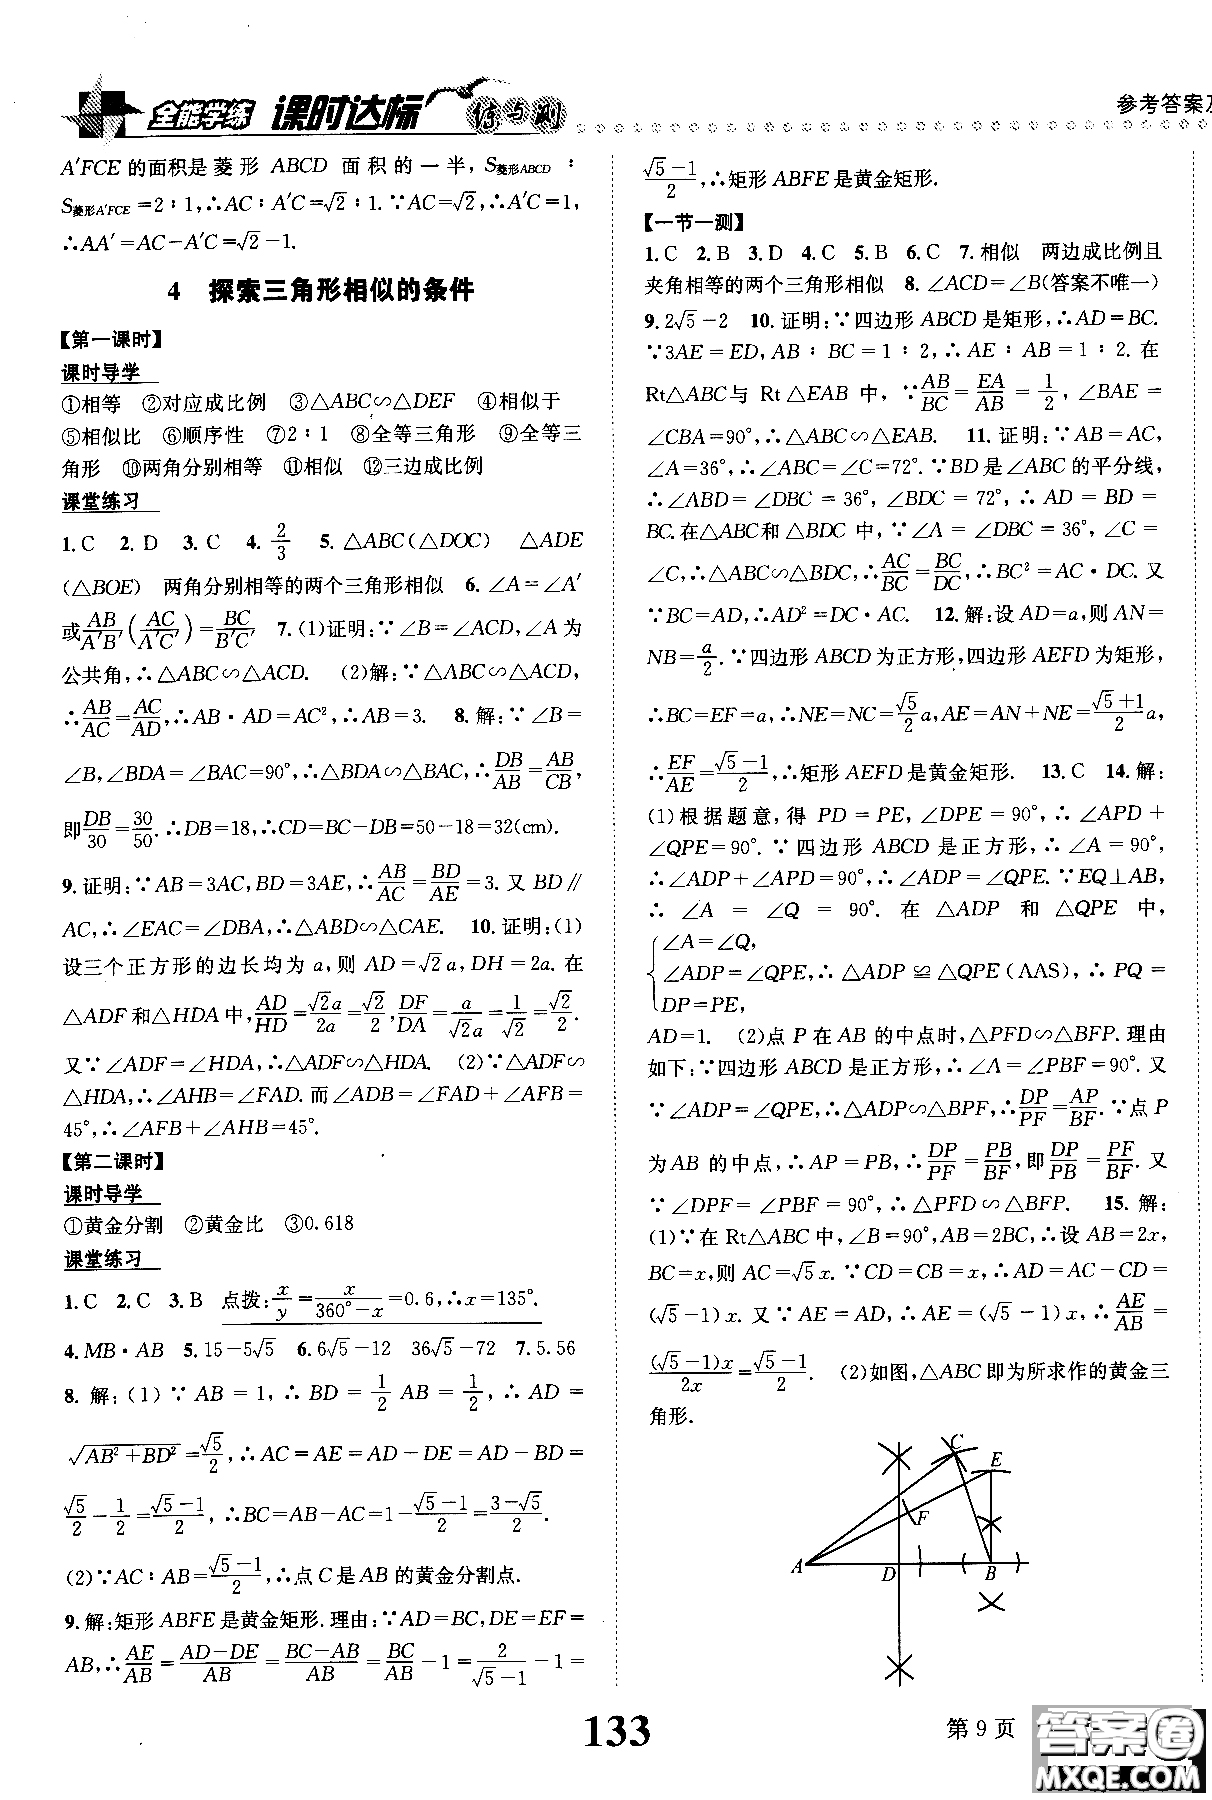 全能学练 课时达标 练与测
参考答案及
A′FCE 的面积是菱形 ABCD 面积的一半, S菱形ABCD :
S菱形A′FCE =2:1,∴AC:A′C=√2:1.∵AC=√2,∴A′C=1,
∴AA′=AC-A′C=√2-1.
4 探索三角形相似的条件
【第一课时】
课时导学
①相等 ②对应成比例 ③△ABC∽△DEF ④相似于
⑤相似比 ⑥顺序性 ⑦2:1 ⑧全等三角形 ⑨全等三
角形 ⑩两角分别相等 ⑪相似 ⑫三边成比例
课堂练习
1.C 2.D 3.C 4.2/3 5.△ABC(△DOC) △ADE
(△BOE) 两角分别相等的两个三角形相似 6.∠A=∠A′
或AB/A′B′(AC/A′C′)=BC/B′C′ 7.(1)证明:∵∠B=∠ACD,∠A为
公共角,∴△ABC∽△ACD. (2)解:∵△ABC∽△ACD,
∴AB/AC=AC/AD,∴AB·AD=AC²,∴AB=3. 8.解:∵∠B=
∠B,∠BDA=∠BAC=90°,∴△BDA∽△BAC,∴DB/AB=AB/CB,
即DB/30=30/50.∴DB=18,∴CD=BC-DB=50-18=32(cm).
9.证明:∵AB=3AC,BD=3AE,∴AB/AC=BD/AE=3.又BD∥
AC,∴∠EAC=∠DBA,∴△ABD∽△CAE. 10.证明:(1)
设三个正方形的边长均为a,则AD=√2a,DH=2a.在
△ADF和△HDA中,AD/HD=√2a/2a=√2/2,DF/DA=a/√2a=1/√2=√2/2.
又∵∠ADF=∠HDA,∴△ADF∽△HDA. (2)∵△ADF∽
△HDA,∴∠AHB=∠FAD.而∠ADB=∠FAD+∠AFB=
45°,∴∠AFB+∠AHB=45°.
【第二课时】
课时导学
①黄金分割 ②黄金比 ③0.618
课堂练习
1.C 2.C 3.B 点拨:x/y=x/(360°-x)=0.6,∴x=135°.
4.MB·AB 5.15-5√5 6.6√5-12 36√5-72 7.5.56
8.解:(1)∵AB=1,∴BD=1/2AB=1/2,∴AD=
√(AB²+BD²)=√5/2,∴AC=AE=AD-DE=AD-BD=
√5/2-1/2=(√5-1)/2,∴BC=AB-AC=1-(√5-1)/2=(3-√5)/2.
(2)∵AC:AB=(√5-1)/2,∴点C是AB的黄金分割点.
9.解:矩形ABFE是黄金矩形.理由:∵AD=BC,DE=EF=
AB,∴AE/AB=(AD-DE)/AB=(BC-AB)/AB=BC/AB-1=2/(√5-1)-1=
(√5-1)/2,∴矩形ABFE是黄金矩形.
【一节一测】
1.C 2.B 3.D 4.C 5.B 6.C 7.相似 两边成比例且
夹角相等的两个三角形相似 8.∠ACD=∠B(答案不唯一)
9.2√5-2 10.证明:∵四边形ABCD是矩形,∴AD=BC.
∵3AE=ED,AB:BC=1:2,∴AE:AB=1:2.在
Rt△ABC与Rt△EAB中,∵AB/BC=EA/AB=1/2,∠BAE=
∠CBA=90°,∴△ABC∽△EAB. 11.证明:∵AB=AC,
∠A=36°,∴∠ABC=∠C=72°.∵BD是∠ABC的平分线,
∴∠ABD=∠DBC=36°,∠BDC=72°,∴AD=BD=
BC.在△ABC和△BDC中,∵∠A=∠DBC=36°,∠C=
∠C,∴△ABC∽△BDC,∴AC/BC=BC/DC,∴BC²=AC·DC.又
∵BC=AD,∴AD²=DC·AC. 12.解:设AD=a,则AN=
NB=a/2.∵四边形ABCD为正方形,四边形AEFD为矩形,
∴BC=EF=a,∴NE=NC=√5/2a,AE=AN+NE=(√5+1)/2a,
∴EF/AE=(√5-1)/2,∴矩形AEFD是黄金矩形. 13.C 14.解:
(1)根据题意,得PD=PE,∠DPE=90°,∴∠APD+
∠QPE=90°.∵四边形ABCD是正方形,∴∠A=90°,
∴∠ADP+∠APD=90°,∴∠ADP=∠QPE.∵EQ⊥AB,
∴∠A=∠Q=90°.在△ADP和△QPE中,
∠A=∠Q,
∠ADP=∠QPE,∴△ADP≌△QPE(AAS),∴PQ=
DP=PE,
AD=1. (2)点P在AB的中点时,△PFD∽△BFP.理由
如下:∵四边形ABCD是正方形,∴∠A=∠PBF=90°.又
∵∠ADP=∠QPE,∴△ADP∽△BPF,∴DP/PF=AP/BF.∵点P
为AB的中点,∴AP=PB,∴DP/PF=PB/BF,即DP/PB=PF/BF.又
∵∠DPF=∠PBF=90°,∴△PFD∽△BFP. 15.解:
(1)∵在Rt△ABC中,∠B=90°,AB=2BC,∴设AB=2x,
BC=x,则AC=√5x.∵CD=CB=x,∴AD=AC-CD=
(√5-1)x.又∵AE=AD,∴AE=(√5-1)x,∴AE/AB=
(√5-1)x/2x=(√5-1)/2. (2)如图,△ABC即为所求作的黄金三
角形.
C
E
F
A
D
B
133
第9页
答案卷
MXQE.COM